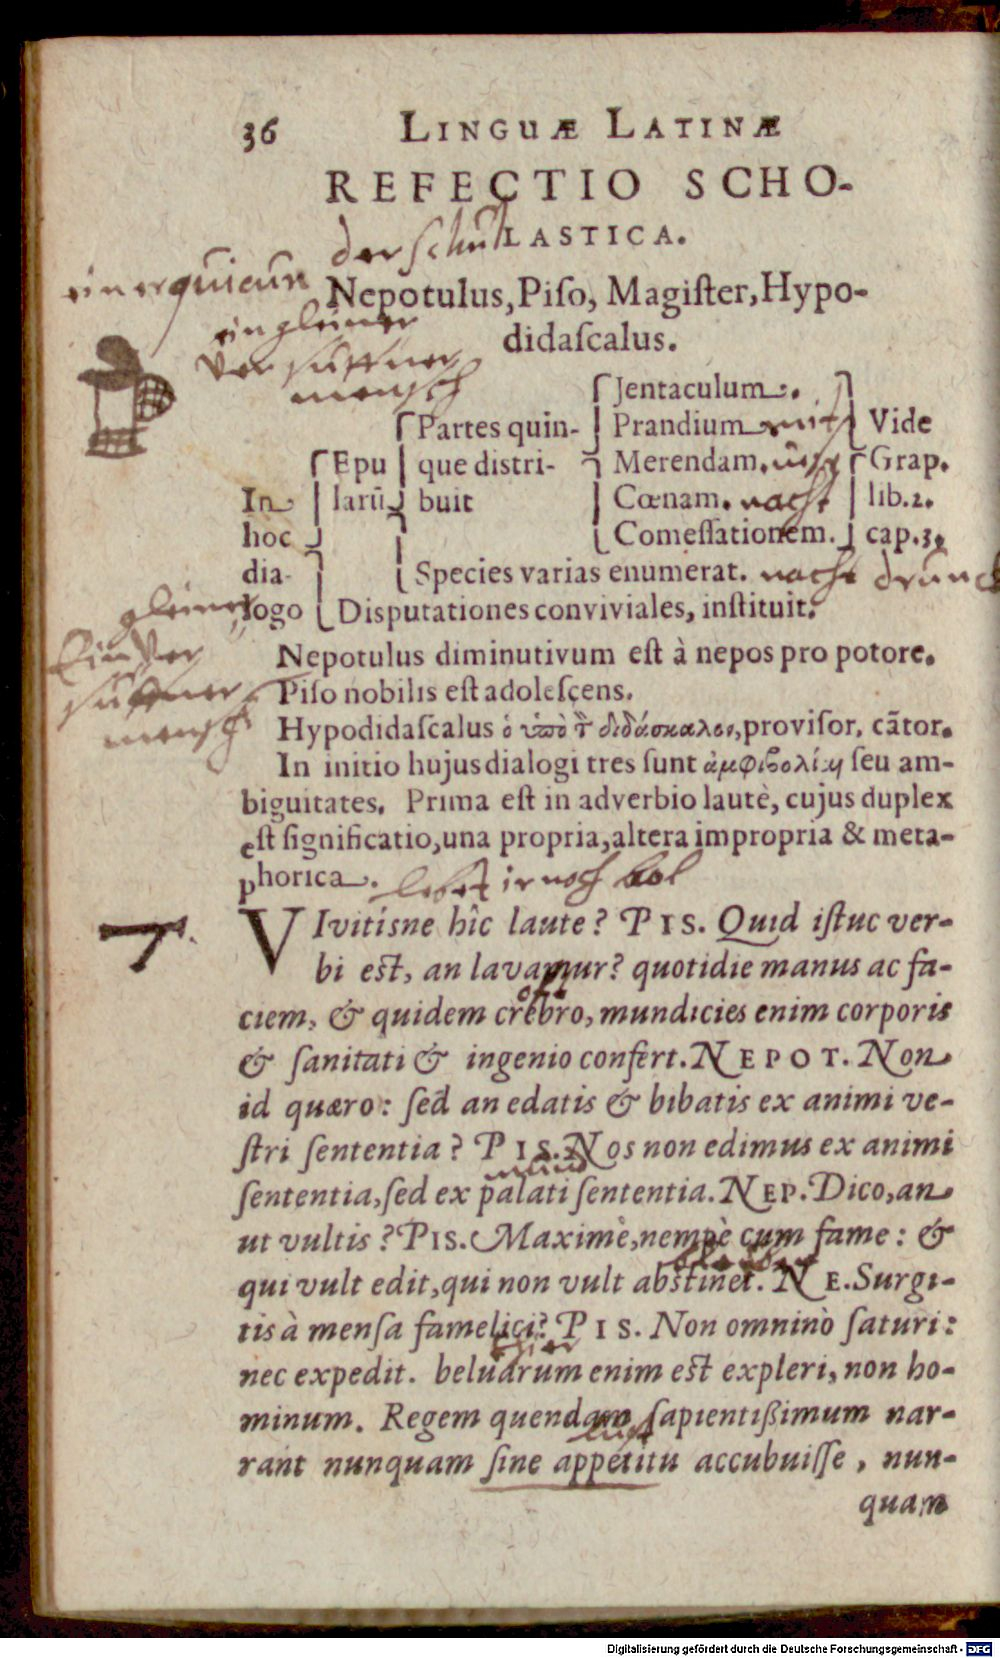 36 LINGUÆ LATINÆ
REFECTIO SCHO-
der schul LASTICA.
Nepotulus, Piſo, Magiſter, Hypo-
ein gleiner
didaſcalus.
ver
mensch
Jentaculum.
Partes quin- Prandium Vide
Epu que diſtri- Merendam. Grap.
In larũ buit Cœnam. nacht lib.2.
hoc Comeſſationem. cap.3.
dia- Species varias enumerat. nacht drunck
logo Diſputationes conviviales, inſtituit.
gleiner
Ein ver
mensch
Nepotulus diminutivum eſt à nepos pro potore.
Piſo nobilis eſt adoleſcens.
Hypodidaſcalus ὁ ὑπὸ τ͂ διδάσκαλος, proviſor, cãtor.
In initio hujus dialogi tres ſunt ἀμφιβολίαι ſeu am-
biguitates. Prima eſt in adverbio lautè, cujus duplex
eſt ſignificatio, una propria, altera impropria & meta-
phorica. lebet ir noch
VIvitiſne hîc laute? PIS. Quid iſtuc ver-
bi eſt, an lavamur? quotidie manus ac fa-
ciem, & quidem crebro, mundicies enim corporis
& ſanitati & ingenio confert. NEPOT. Non
id quæro: ſed an edatis & bibatis ex animi ve-
ſtri ſententia? PIS. Nos non edimus ex animi
ſententia, ſed ex palati ſententia. NEP. Dico, an
ut vultis? PIS. Maximè, nempè cum fame: &
qui vult edit, qui non vult abſtinet. NE. Surgi-
tis à menſa famelici? PIS. Non omninò ſaturi:
nec expedit. beluarum enim eſt expleri, non ho-
minum. Regem quendam ſapientißimum nar-
rant nunquam ſine appetitu accubuiſſe, nun-
quam
Digitalisierung gefördert durch die Deutsche Forschungsgemeinschaft - DFG